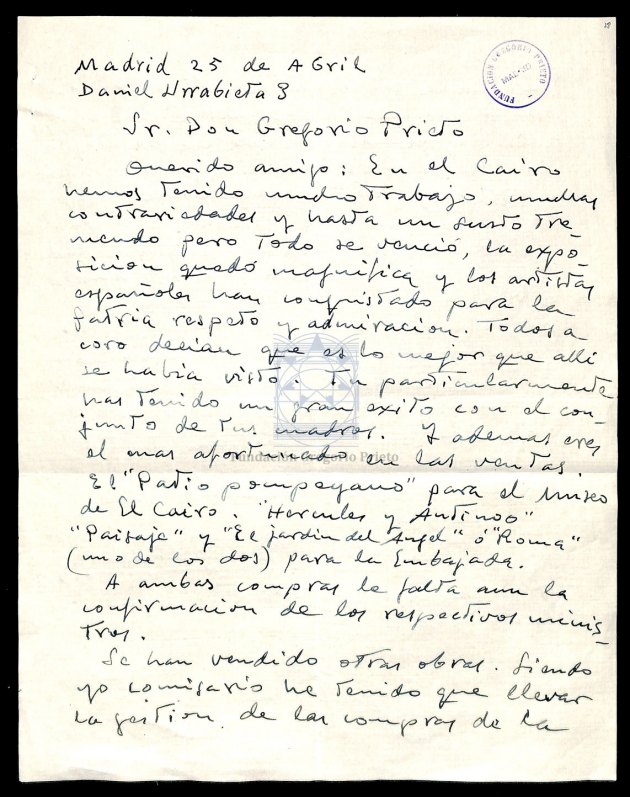 18
FUNDACION GREGORIO PRIETO
Madrid 25 de Abril
Daniel Urrabieta 3
Sr. Don Gregorio Prieto
Querido amigo: En el Cairo
hemos tenido mucho trabajo, muchas
contrariedades y hasta un susto tre-
mendo pero todo se venció, la expo-
sicion quedó magnifica y los artistas
españoles han conquistado para la
patria respeto y admiracion. Todos a
coro decian que es lo mejor que alli
se habia visto. Tu particularmente
has tenido un gran exito con el con-
junto de tus cuadros. Y ademas eres
el mas afortunado en las ventas.
Fundación Gregorio Prieto
El "Patio pompeyano" para el Museo
de El Cairo. "Hercules y Antinoo"
"Paisaje" y "El jardin del Angel" ó "Roma"
(uno de los dos) para la Embajada.
A ambas compras le falta aun la
confirmacion de los respectivos minis-
tros.
Se han vendido otras obras. Siendo
yo comisario he tenido que llevar
la gestion de las compras de la